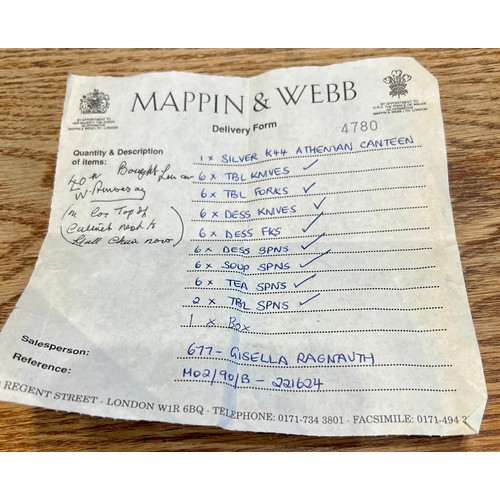 MAPPIN & WEBB
BY APPOINTMENT TO
HER MAJESTY THE QUEEN
SILVERSMITHS
MAPPIN & WEBB LTD. LONDON
BY APPOINTMENT TO
H.R.H. THE PRINCE OF WALES
SILVERSMITHS
MAPPIN & WEBB LTD. LONDON
Delivery Form
4780
Quantity & Description
of items:
1 x SILVER K44 ATHENIAN CANTEEN
6 x TBL KNIVES ✓
6 x TBL FORKS ✓
6 x DESS KNIVES ✓
6 x DESS FKS ✓
6 x DESS SPNS ✓
6 x SOUP SPNS ✓
6 x TEA SPNS ✓
2 x TBL SPNS ✓
1 x Box
Bought
40th
W.
Top of
Cabinet next to
Chair now)
Salesperson:
677- GISELLA RAGNAUTH
Reference:
M02/90/B - 221624
REGENT STREET - LONDON W1R 6BQ - TELEPHONE: 0171-734 3801 - FACSIMILE: 0171-494